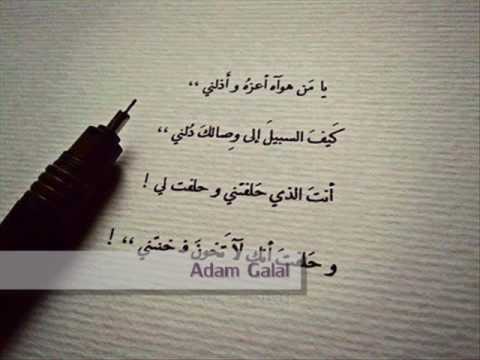 يا مَن هوآه أعزهُ و أذلني ،،
كَيفَ السبيلَ إلى وِصالكَ دُلني ،،
أنتَ الذي حَلفتني و حلفت لي !
و حَلفتَ أنك لآ تَخونَ فـ خنتني ،، !
Adam Galal